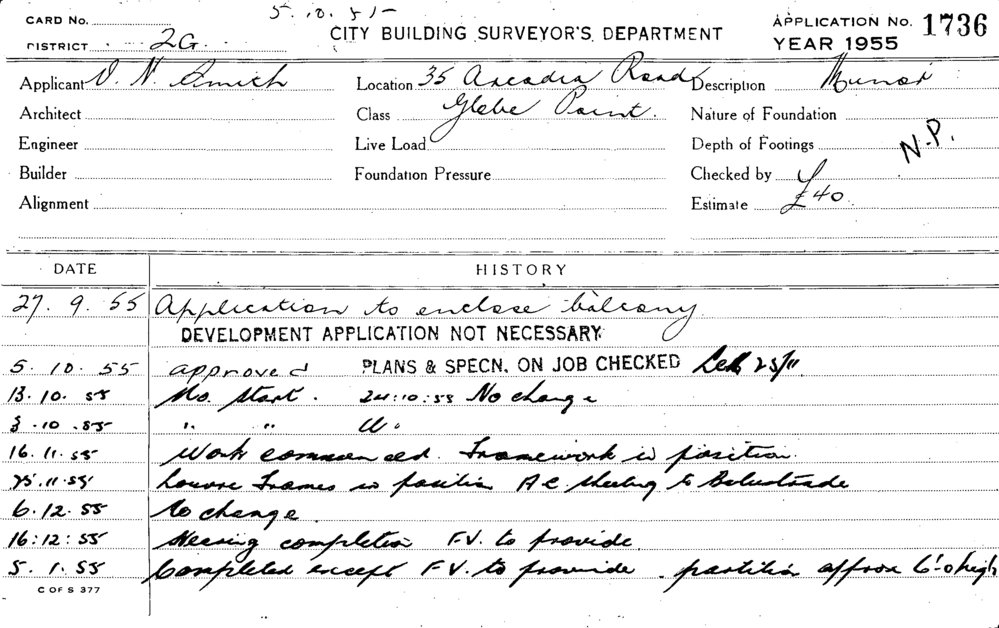 5.10.55
CARD No.
CITY BUILDING SURVEYOR'S DEPARTMENT
APPLICATION No. 1736
DISTRICT 2G.
YEAR 1955
Applicant V. N. Smith Location 35 Arcadia Road Description Minor
Architect Class Glebe Point. Nature of Foundation
Engineer Live Load Depth of Footings N.P.
Builder Foundation Pressure Checked by
Alignment Estimate £40
DATE HISTORY
27. 9. 55 Application to enclose balcony
DEVELOPMENT APPLICATION NOT NECESSARY
5. 10. 55 approved PLANS & SPECN. ON JOB CHECKED 25/11.
13. 10. 55 No. Start. 24:10:55 No change
3 .10 .55 " "
16. 11. 55 Work commenced. Framework in position.
25. 11. 55 Louvre Frames in position A C. sheeting to Balustrade
6. 12. 55 No change.
16: 12: 55 Nearing completion F.V. to provide.
5. 1. 55 Completed except F.V. to provide. partition approx 6'-0 high
C OF S 377